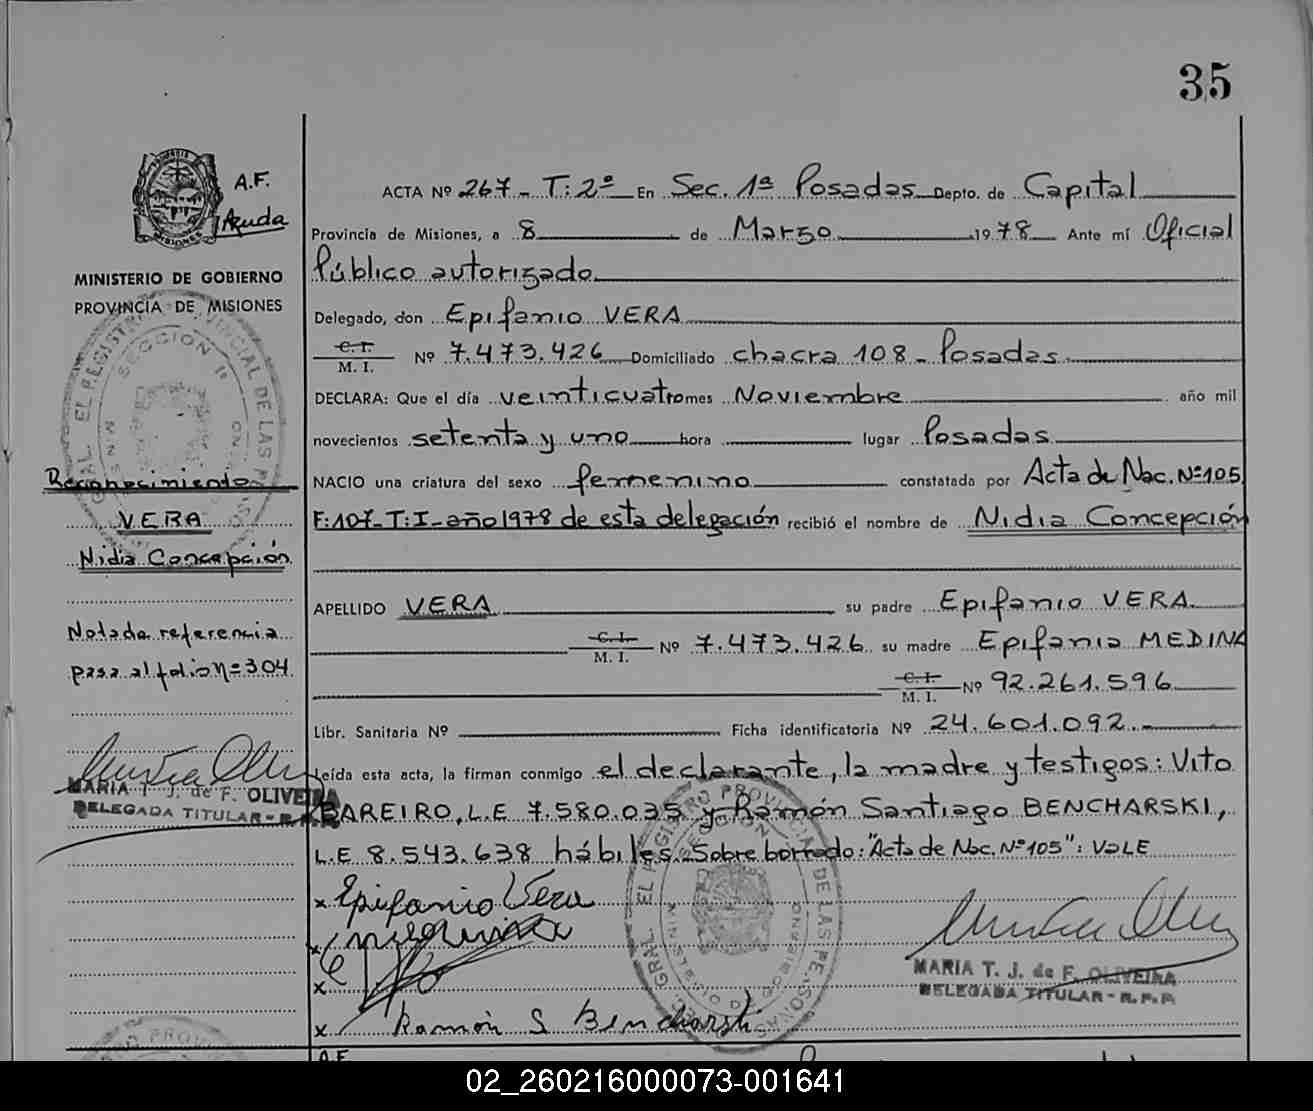 35
A.F.
Ayuda
MINISTERIO DE GOBIERNO
PROVINCIA DE MISIONES
Reconocimiento
VERA
Nidia Concepción
Notada referencia
pasa al folio Nº 304
MARIA T. J. de F. OLIVEIRA
DELEGADA TITULAR - R.P.P.
ACTA Nº 267 - T: 2º En Sec. 1ª Posadas Depto. de Capital
Provincia de Misiones, a 8 de Marzo 1978 Ante mí Oficial
Público autorizado
Delegado, don Epifanio VERA
C.I.
M. I. Nº 7.473.426 Domiciliado chacra 108 - Posadas
DECLARA: Que el día veinticuatro mes Noviembre año mil
novecientos setenta y uno hora lugar Posadas
NACIO una criatura del sexo femenino constatada por Acta de Nac. Nº 105
F:107 - T:I - año 1978 de esta delegación recibió el nombre de Nidia Concepción
APELLIDO VERA su padre Epifanio VERA
C.I.
M. I. Nº 7.473.426 su madre Epifania MEDINA
C.I.
M. I. Nº 92.261.596
Libr. Sanitaria Nº Ficha identificatoria Nº 24.601.092.-
Leída esta acta, la firman conmigo el declarante, la madre y testigos: Vito
BAREIRO, L.E 7.580.035 y Ramón Santiago BENCHARSKI,
L.E 8.543.638 hábiles. Sobre borrado: "Acta de Nac. Nº 105": VALE
x Epifanio Vera
x
x
x Ramón S Bencharski
MARIA T. J. de F. OLIVEIRA
DELEGADA TITULAR - R.P.P.
A.F.
02_260216000073-001641